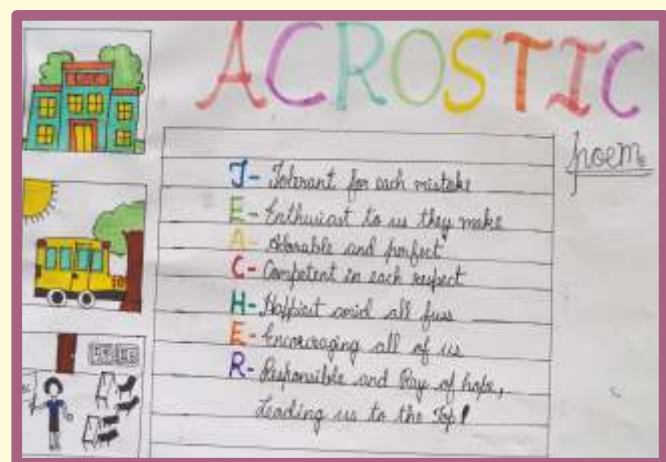 ACROSTIC
poem
T- Tolerant for each mistake
E- Enthusiast to us they make
A- Adorable and perfect
C- Competent in each respect
H- Happiest amid all fuss
E- Encouraging all of us
R- Responsible and Ray of hope,
Leading us to the Top!